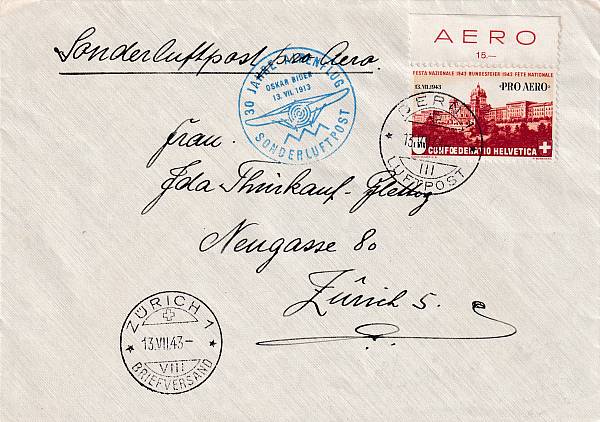 Sonderluftpost pro Aero.
30 JAHRE ALPENFLUG
OSKAR BIDER
13. VII. 1913
SONDERLUFTPOST
AERO
15.—
FESTA NAZIONALE 1943 BUNDESFEIER 1943 FÊTE NATIONALE
13.VII.1943 ·PRO AERO·
CONFOEDERATIO HELVETICA
BERN
13.VII
III
LUFTPOST
Frau.
Ida
Neugasse 80
Zürich 5.
ZÜRICH 1
13.VII.43-
VIII
BRIEFVERSAND